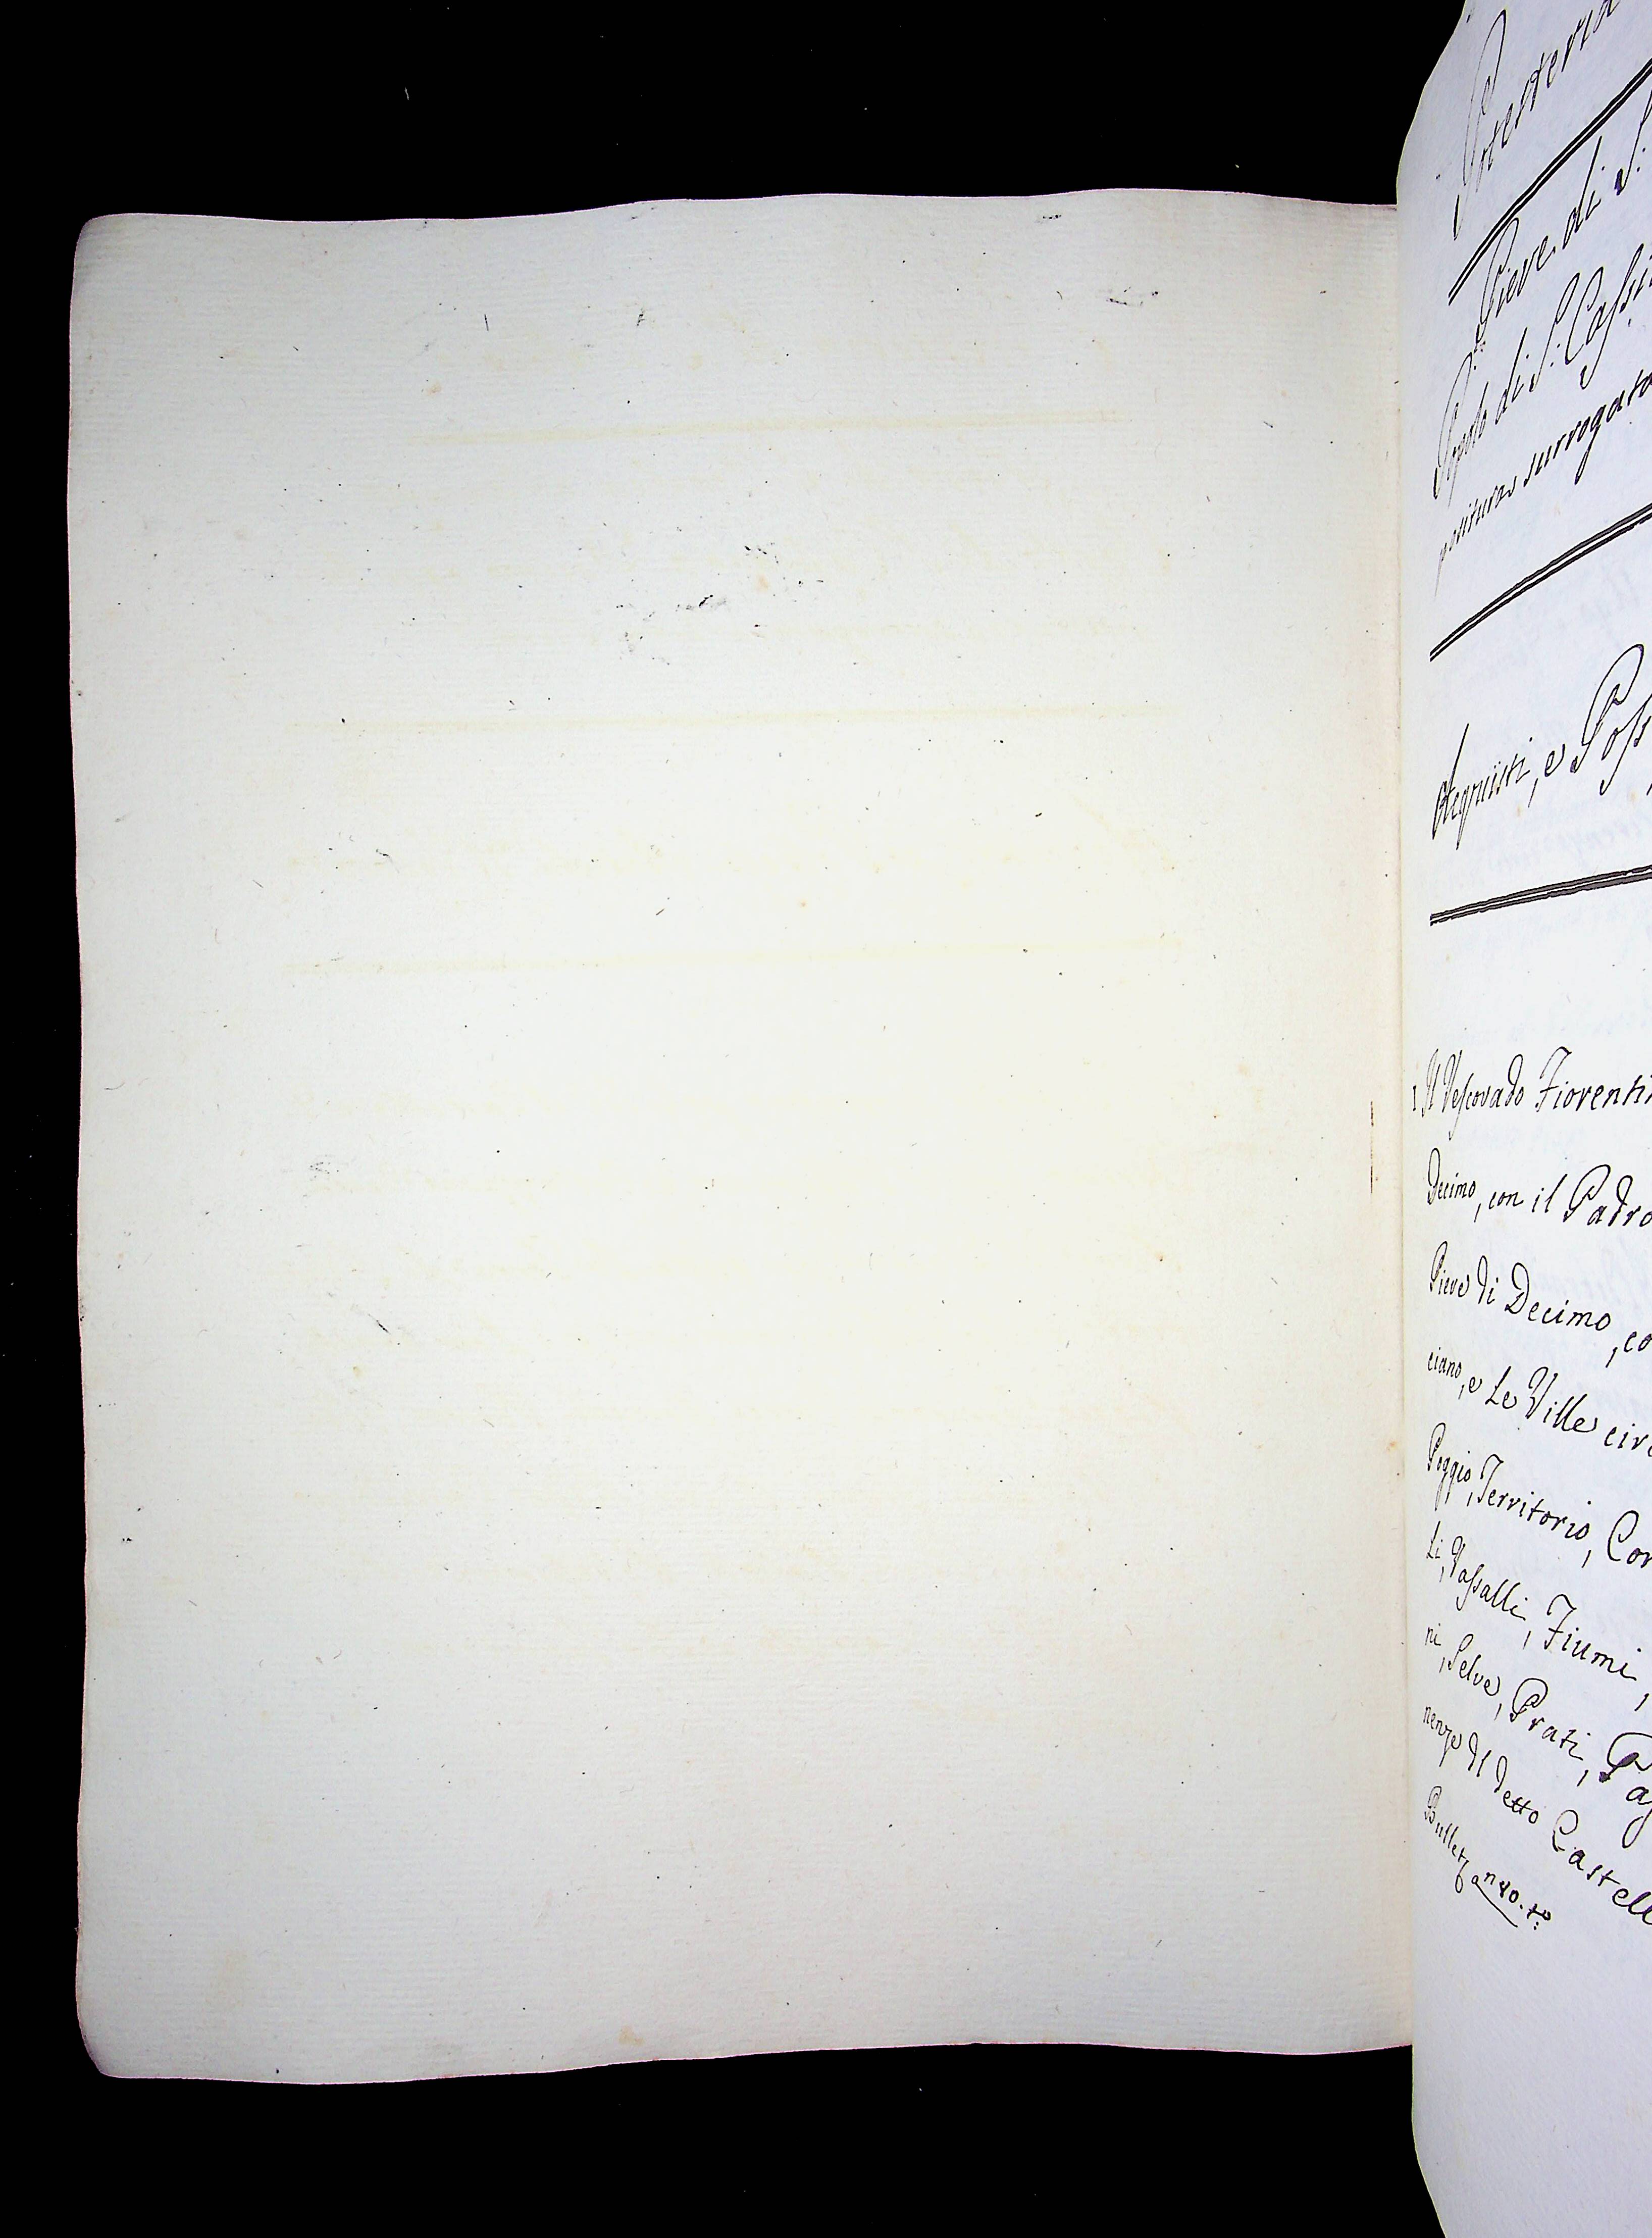 Potesteria
Pieve di S:
Popolo di S: Cassi
positura surrogata
Acquisti, e Poss
Il Vescovado Fiorenti
Decimo, con il Padro
Pieve di Decimo, co
ciano, e Le Ville circ
Poggio, Territorio, Con
Li, Vassalli, Fiumi,
ni, Selve, Prati, Pas
nenze del detto Castell